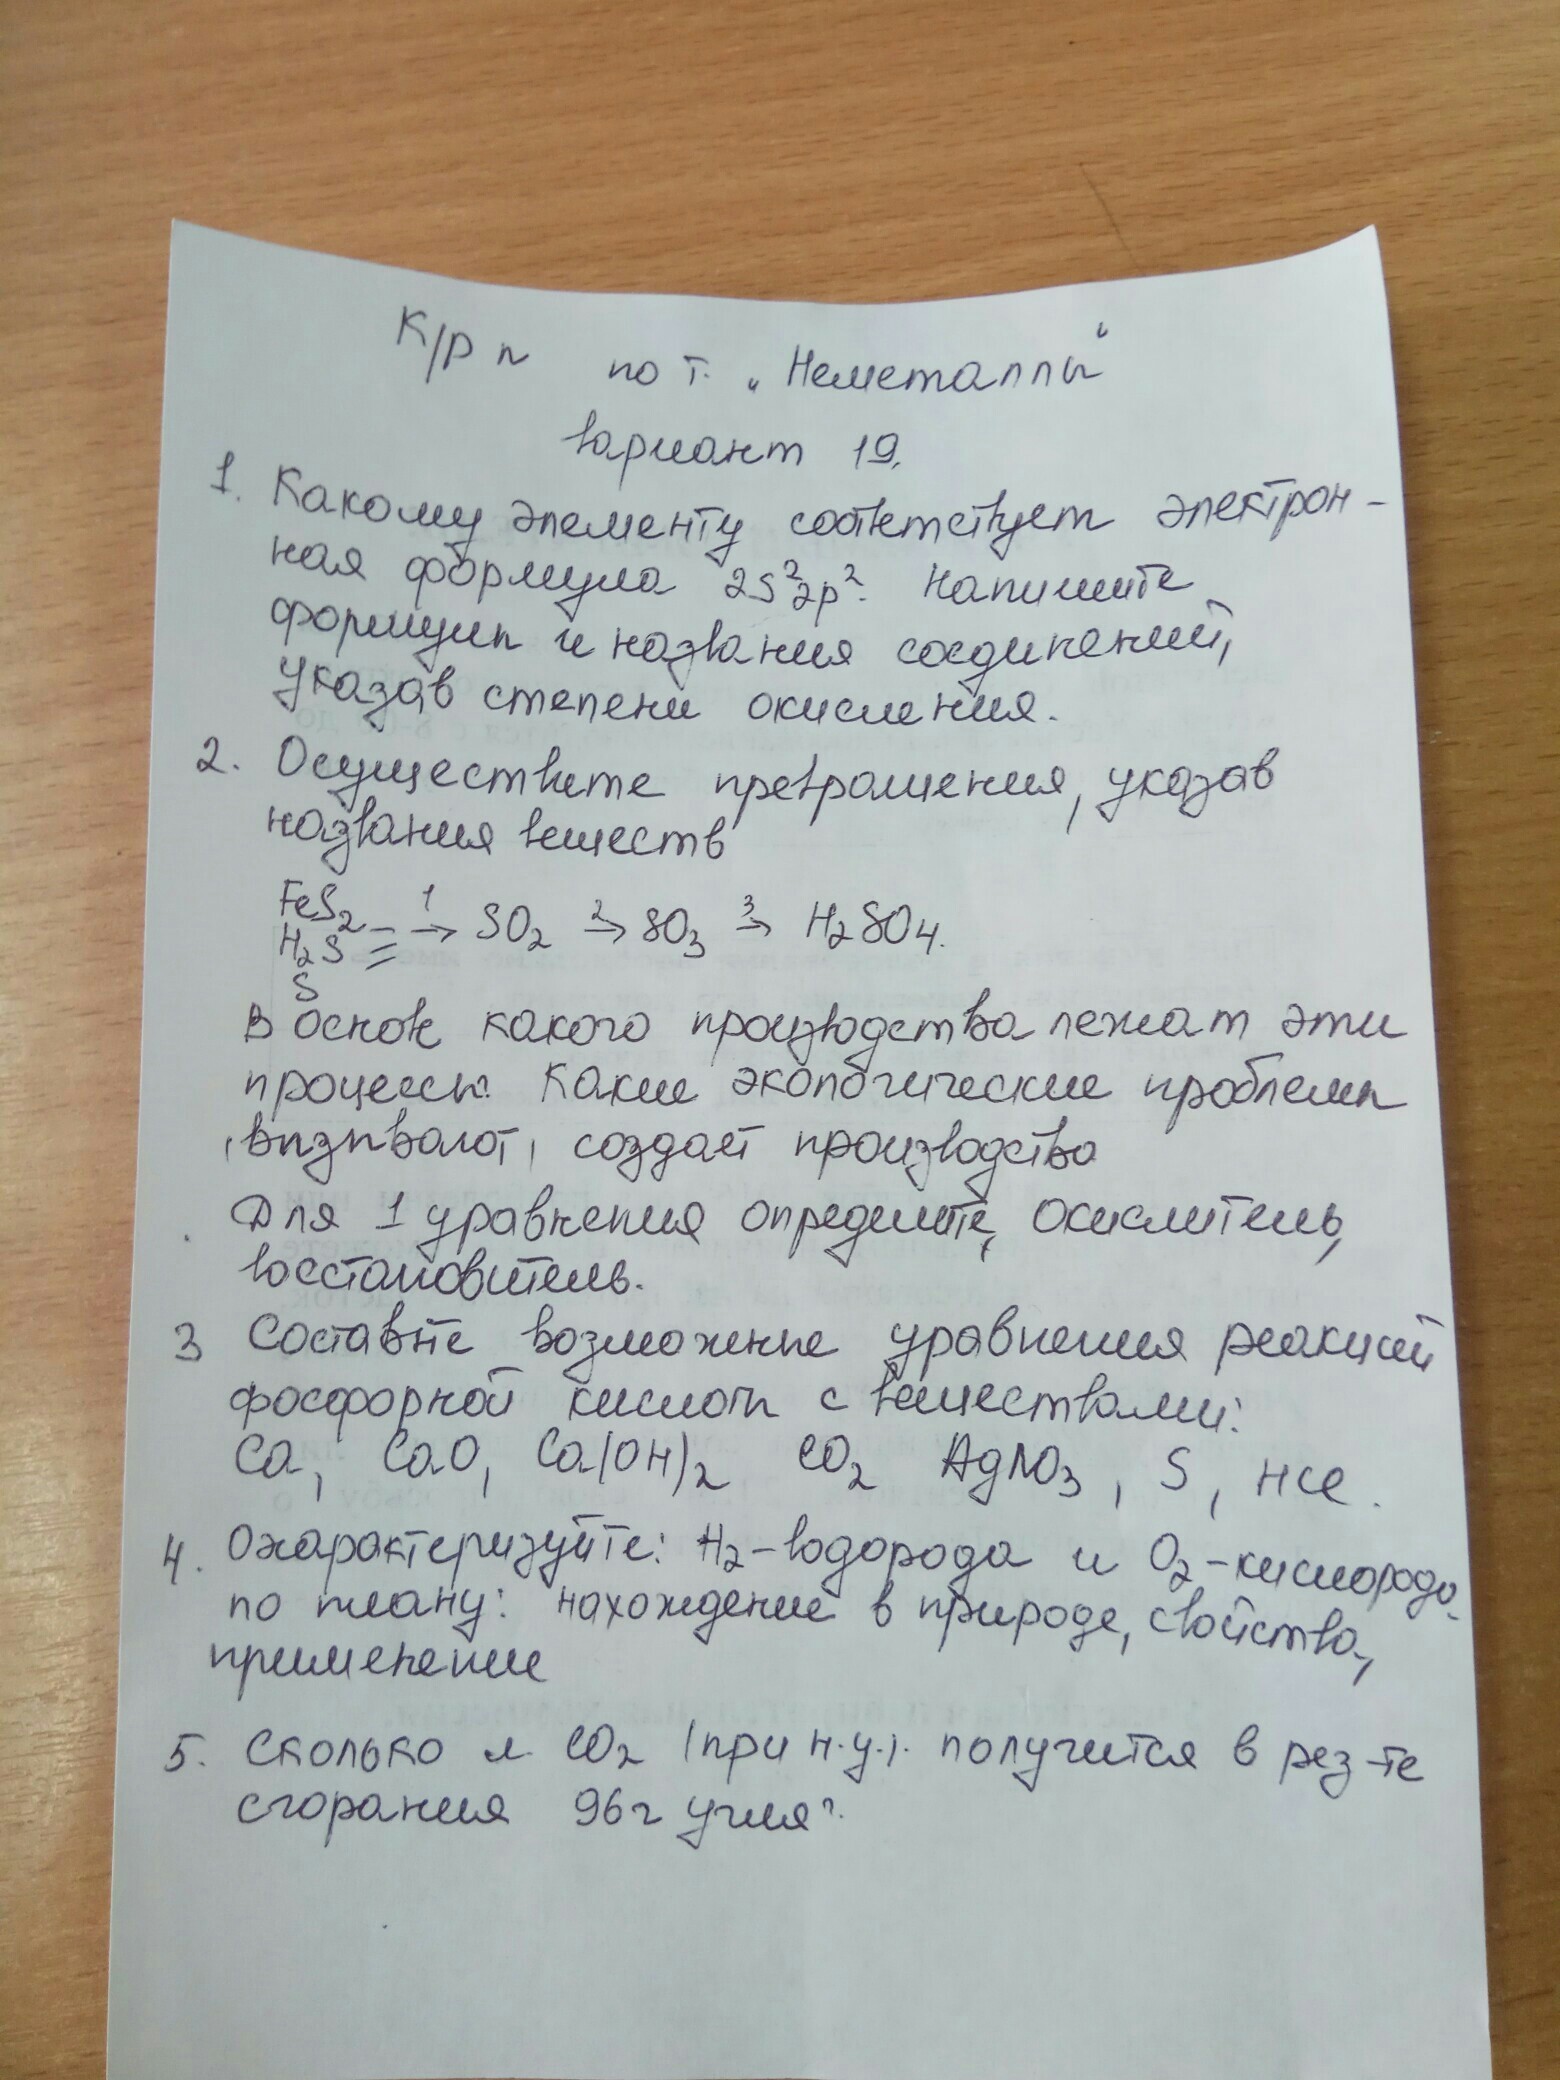 К/р по т. "Неметаллы"
Вариант 19.
1. Какому элементу соответствует электрон-
ная формула 2S²2p². Напишите
формулы и названия соединений,
указав степени окисления.
2. Осуществите превращения, указав
названия веществ
FeS₂
H₂S = →¹ SO₂ →² SO₃ →³ H₂SO₄.
S
В основе какого производства лежат эти
процессы. Какие экологические проблемы
вызывают, создаёт производство
Для 1 уравнения определите, окислитель,
восстановитель.
3 Составьте возможные уравнения реакций
фосфорной кислоты с веществами:
Ca, CaO, Ca(OH)₂ CO₂ AgNO₃, S, HCl.
4. Охарактеризуйте: H₂-водорода и O₂-кислорода
по плану: нахождение в природе, свойства,
применение
5. Сколько л. CO₂ (при н.у.). получится в рез-те
сгорания 96г угля?